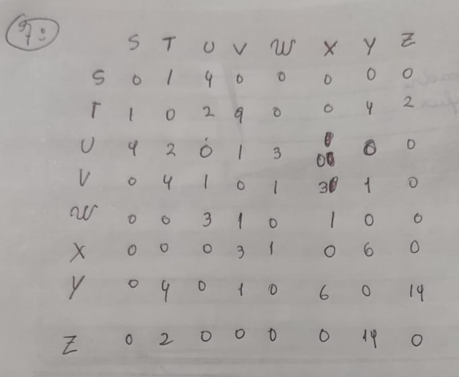 S T U V W X Y Z
S 0 1 4 0 0 0 0 0
T 1 0 2 4 0 0 4 2
U 4 2 0 1 3 0 0 0
V 0 4 1 0 1 3 1 0
W 0 0 3 1 0 1 0 0
X 0 0 0 3 1 0 6 0
Y 0 4 0 1 0 6 0 14
Z 0 2 0 0 0 0 14 0